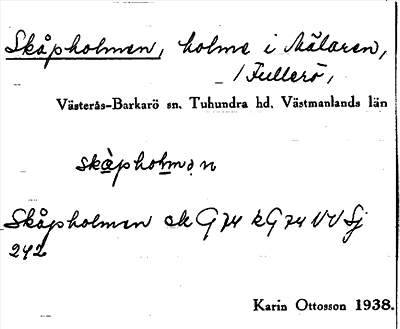 Skåpholmen, holme i Mälaren,
/ Fullerö,
Västerås-Barkarö sn. Tuhundra hd. Västmanlands län
skåpholmen
Skåpholmen ek G 74 kG 74 VV Sj
242
Karin Ottosson 1938.